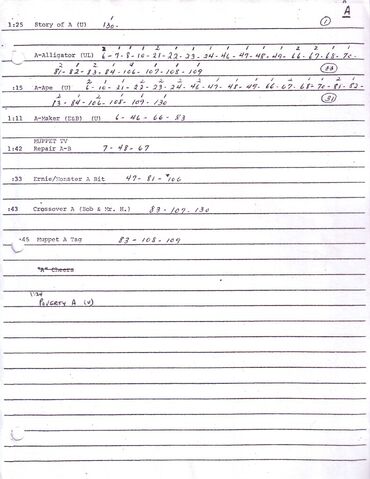 A
A
1:25 Story of A (U) 130- 1
A-Alligator (UL) 6-7-8-10-21-22-23-24-46-47-48-49-66-67-68-70-
81-82-83-84-106-107-108-109
:15 A-Ape (U) 6-10-21-22-23-24-46-47-48-49-66-67-68-70-81-82-
83-84-106-108-109-130
1:11 A-Maker (E&B) (U) 6-46-66-83
MUPPET TV
1:42 Repair A-B 7-48-67
:33 Ernie/Monster A Bit 47-81-106
:43 Crossover A (Bob & Mr. H.) 83-107-130
:45 Muppet A Tag 83-108-109
"A" Cheers
POVERTY A (V)